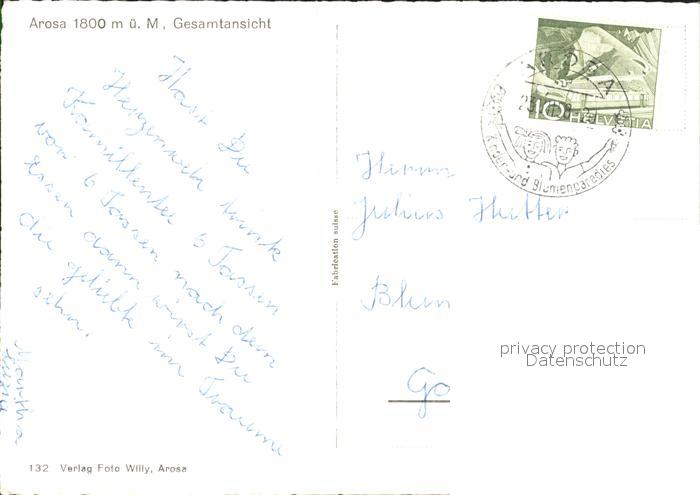 Arosa 1800 m ü. M., Gesamtansicht
Hast Du
Herzensweh trink
Kamillentee 6 Tassen
vor 6 Tassen nach dem
Essen dann wirst Du
die geliebte im Traume
sehn.
Martha
HELVETIA
10
AROSA
Kinder- und Blumenparadies
Fabrication suisse
Herrn
Julius Hutter
Blum
Go
privacy protection
Datenschutz
132 Verlag Foto Willy, Arosa